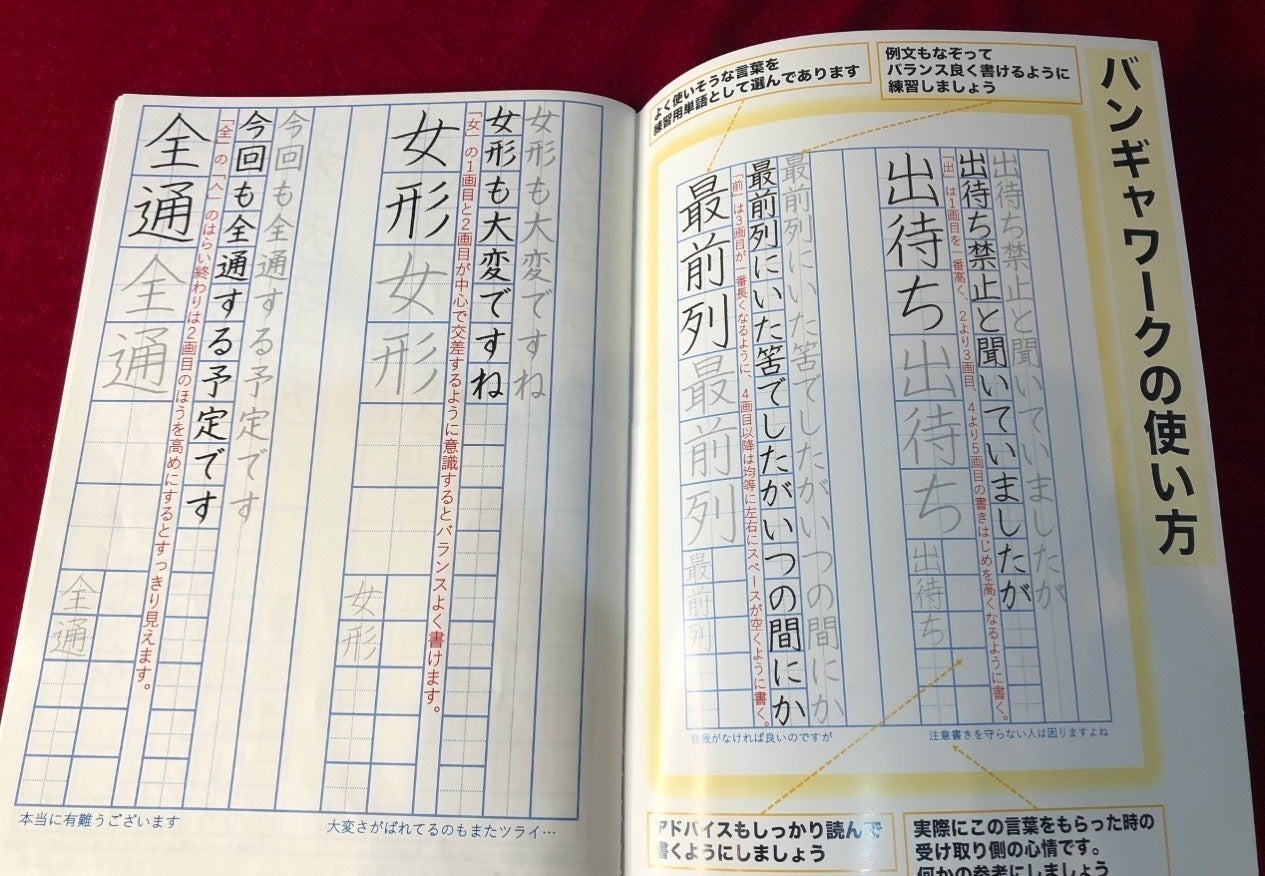 バンギャワークの使い方
例文もなぞって
バランス良く書けるように
練習しましょう
よく使いそうな言葉を
練習用単語として選んであります
出待ち禁止と聞いていましたが
出待ち禁止と聞いていましたが
「出」は1画目を一番高く、2より3画目、4より5画目の書きはじめを高くなるように書く。
出待ち出待ち
出待ち
注意書きを守らない人は困りますよね
最前列にいた筈でしたがいつの間にか
最前列にいた筈でしたがいつの間にか
「前」は3画目が一番長くなるように、4画目以降は均等に左右にスペースが空くように書く。
最前列最前列
最前列
怪我がなければ良いのですが
実際にこの言葉をもらった時の
受け取り側の心情です。
何かの参考にしましょう
アドバイスもしっかり読んで
書くようにしましょう
女形も大変ですね
女形も大変ですね
「女」の1画目と2画目が中心で交差するように意識するとバランスよく書けます。
女形女形
女形
大変さがばれてるのもまたツライ…
今回も全通する予定です
今回も全通する予定です
「全」の「へ」のはらい終わりは2画目のほうを高めにするとすっきり見えます。
全通全通
全通
本当に有難うございます